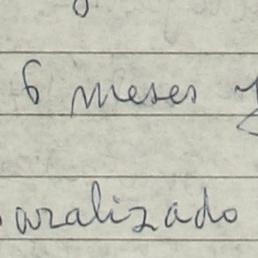 6 meses y
paralizado